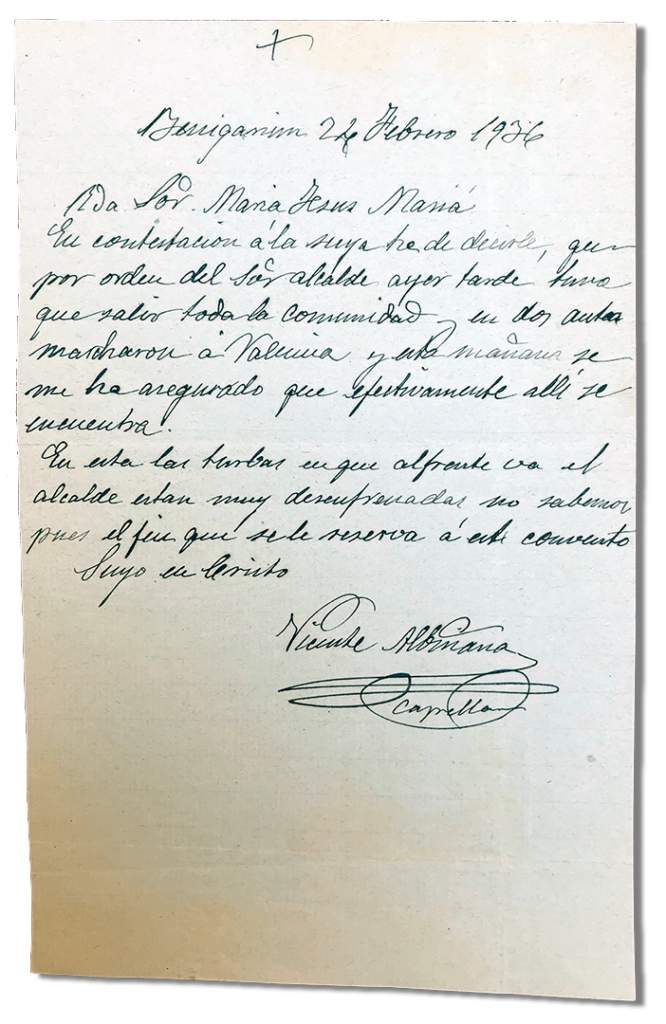 Benigánim 24 Febrero 1936
Rda Sor. Maria Jesus Mariá
En contestacion á la suya he de decirle, que
por orden del Sór alcalde ayer tarde tuvo
que salir toda la comunidad y en dos autos
marcharon á Valencia y esta mañana se
me ha asegurado que efectivamente allí se
encuentra.
En esta las turbas en que alfrente va el
alcalde estan muy desenfrenadas no sabemos
pues el fin que se le reserva á este convento
Suyo en Cristo
Vicente Albiñana
Capellan